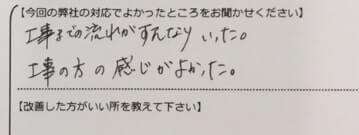 【今回の弊社の対応でよかったところをお聞かせください】
工事までの流れがすんなりいった。
工事の方の感じがよかった。
【改善した方がいい所を教えて下さい】